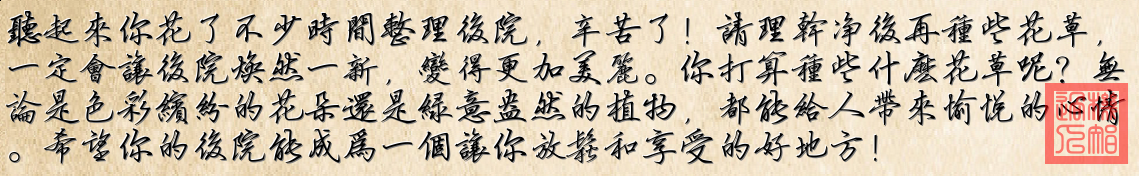 聽起來你花了不少時間整理後院，辛苦了！請理幹净後再種些花草，
一定會讓後院煥然一新，變得更加美麗。你打算種些什麽花草呢？無
論是色彩繽紛的花朵還是綠意盎然的植物，都能給人帶來愉悅的心情
。希望你的後院能成爲一個讓你放鬆和享受的好地方！